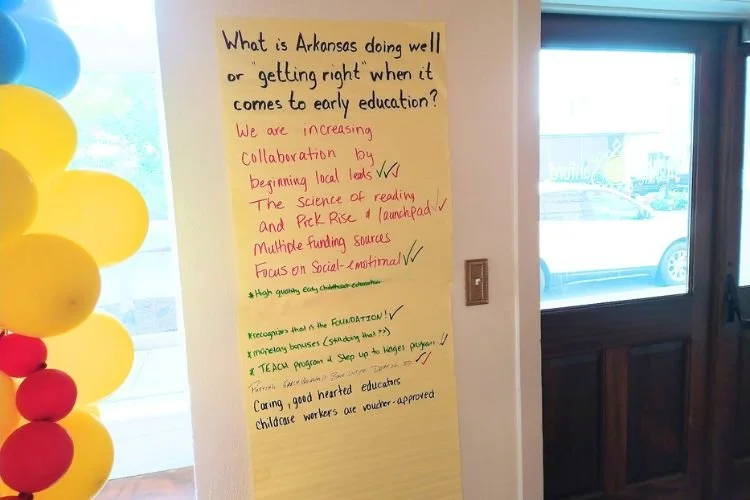 What is Arkansas doing well
or "getting right" when it
comes to early education?
We are increasing
collaboration by
beginning local leads
The science of reading
and PreK Rise & launchpad
Multiple funding sources
Focus on Social-emotional
*High quality Early Childhood education
*recognizes that is the FOUNDATION!
*monetary bonuses (still doing that??)
* TEACH program & Step up to Wages program
Caring, good hearted educators
childcare workers are voucher-approved